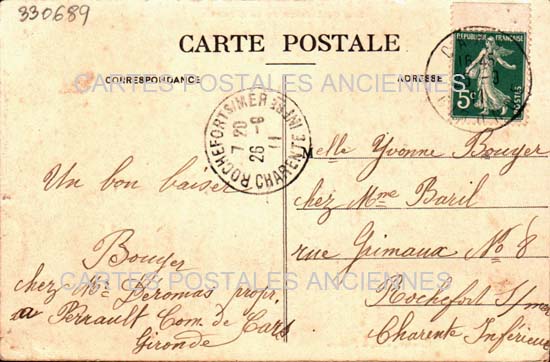 330689
CARTE POSTALE
CORRESPONDANCE
ADRESSE
REPUBLIQUE FRANÇAISE
5c
POSTES
ROCHEFORT S/MER
CHARENTE INFRE
7 20
26 - 8
11
CARTES POSTALES ANCIENNES
Un bon baiser
Bouyer
chez Mr Deromas propr.
a Perrault Com. de Cars
Gironde
Melle Yvonne Bouyer
chez Mme Baril
rue Grimaux No 8
Rochefort s/mer
Charente Inférieure
CARTES POSTALES ANCIENNES